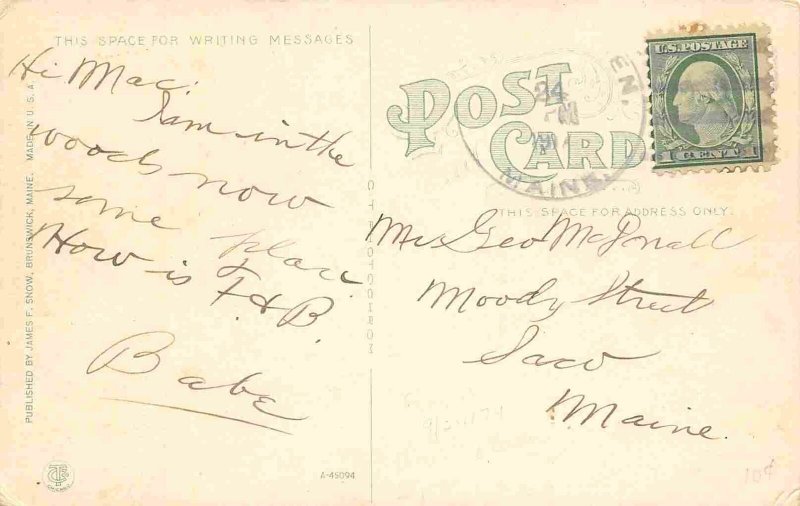 THIS SPACE FOR WRITING MESSAGES
Hi Mac:
I am in the
woods now
some place.
How is F. & B.
Babe
PUBLISHED BY JAMES F. SNOW, BRUNSWICK, MAINE. MADE IN U.S.A.
C.T. PHOTOCHROM
A-45094
POST
CARD
24
PM
MAINE.
EN.
U.S. POSTAGE
1 CENT 1
THIS SPACE FOR ADDRESS ONLY.
Mr Geo McDonall
Moody Street
Saco
Maine.
10¢